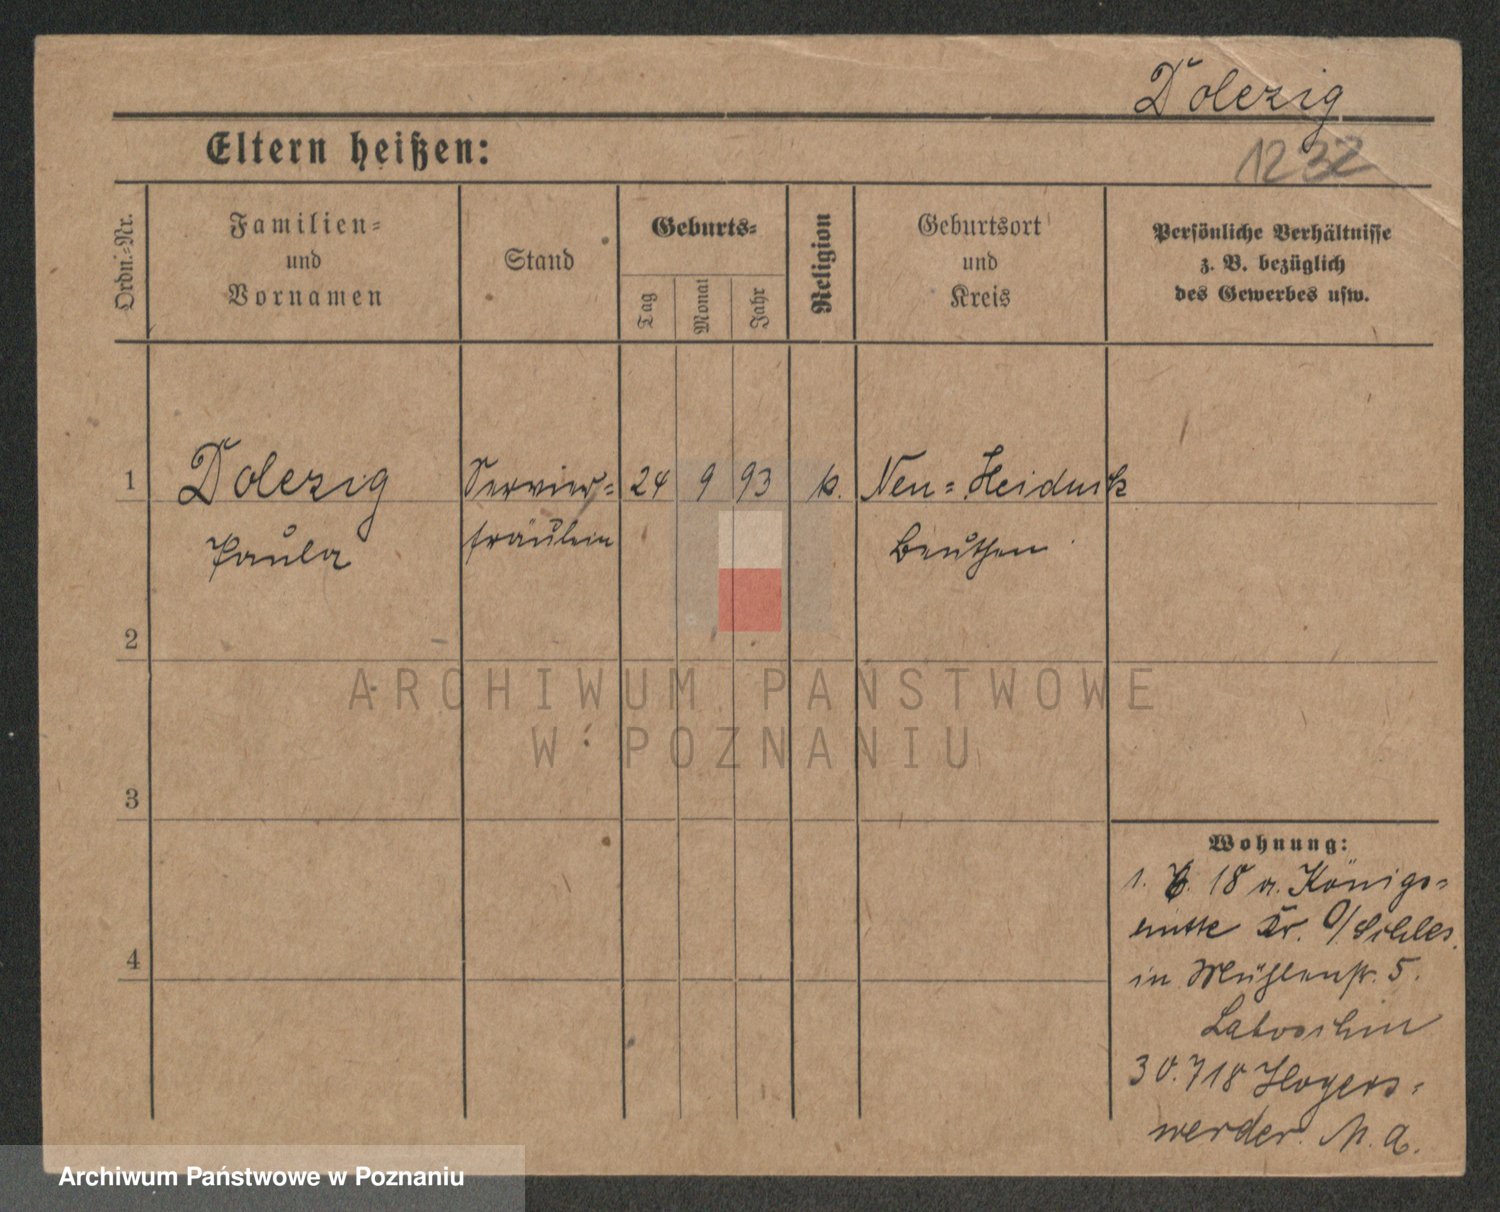 Dolezig
1232
Eltern heißen:
Ordn.-Nr.
Familien-
und
Vornamen
Stand
Geburts-
Tag
Monat
Jahr
Religion
Geburtsort
und
Kreis
Persönliche Verhältnisse
z. B. bezüglich
des Gewerbes usw.
1
Dolezig
Paula
Servier-
fräulein
24 9 93
k.
Neu-Heiduk
Beuthen
2
3
4
Wohnung:
1. 6. 18 a. Königs-
hütte Kr. O/Schles.
in Mühlenstr. 5.
Laboschin
30.7 18 Hoyers-
werder. N. A.
ARCHIWUM PAŃSTWOWE
W POZNANIU
Archiwum Państwowe w Poznaniu